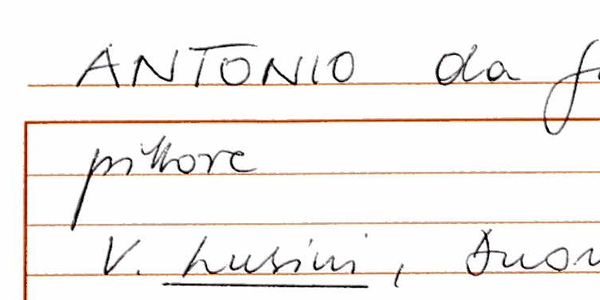 ANTONIO da
pittore
V. Lusini,